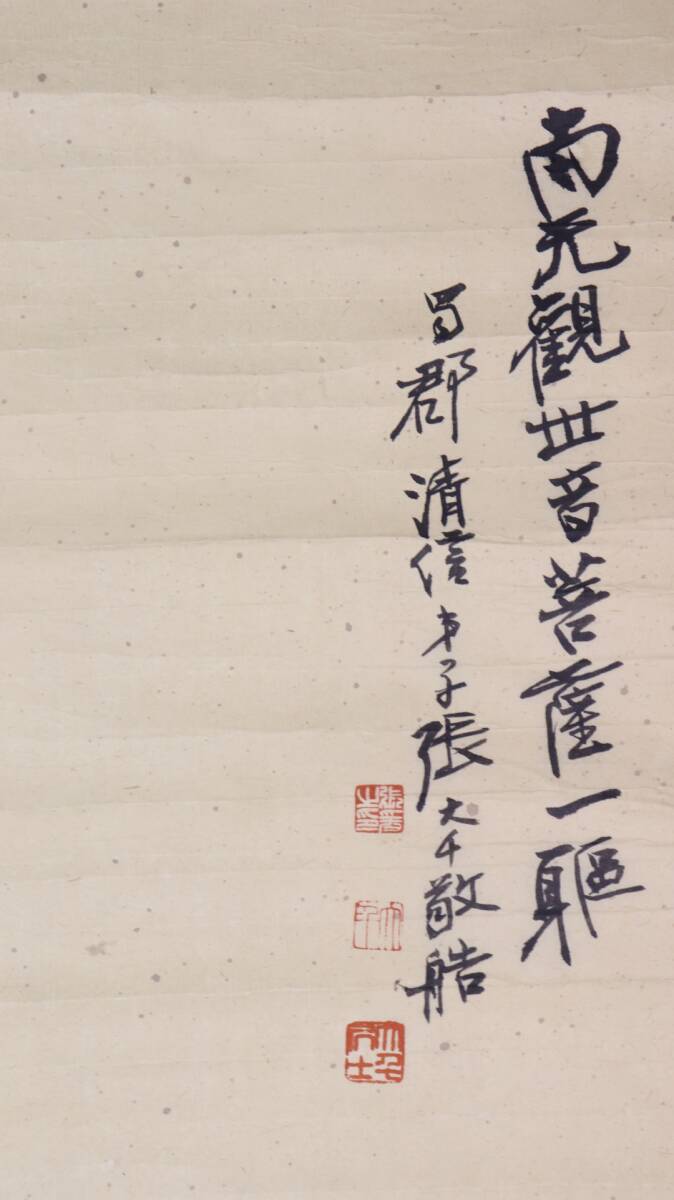 南无觀世音菩薩一軀
蜀郡清信弟子張大千敬造
張爰之印
大千